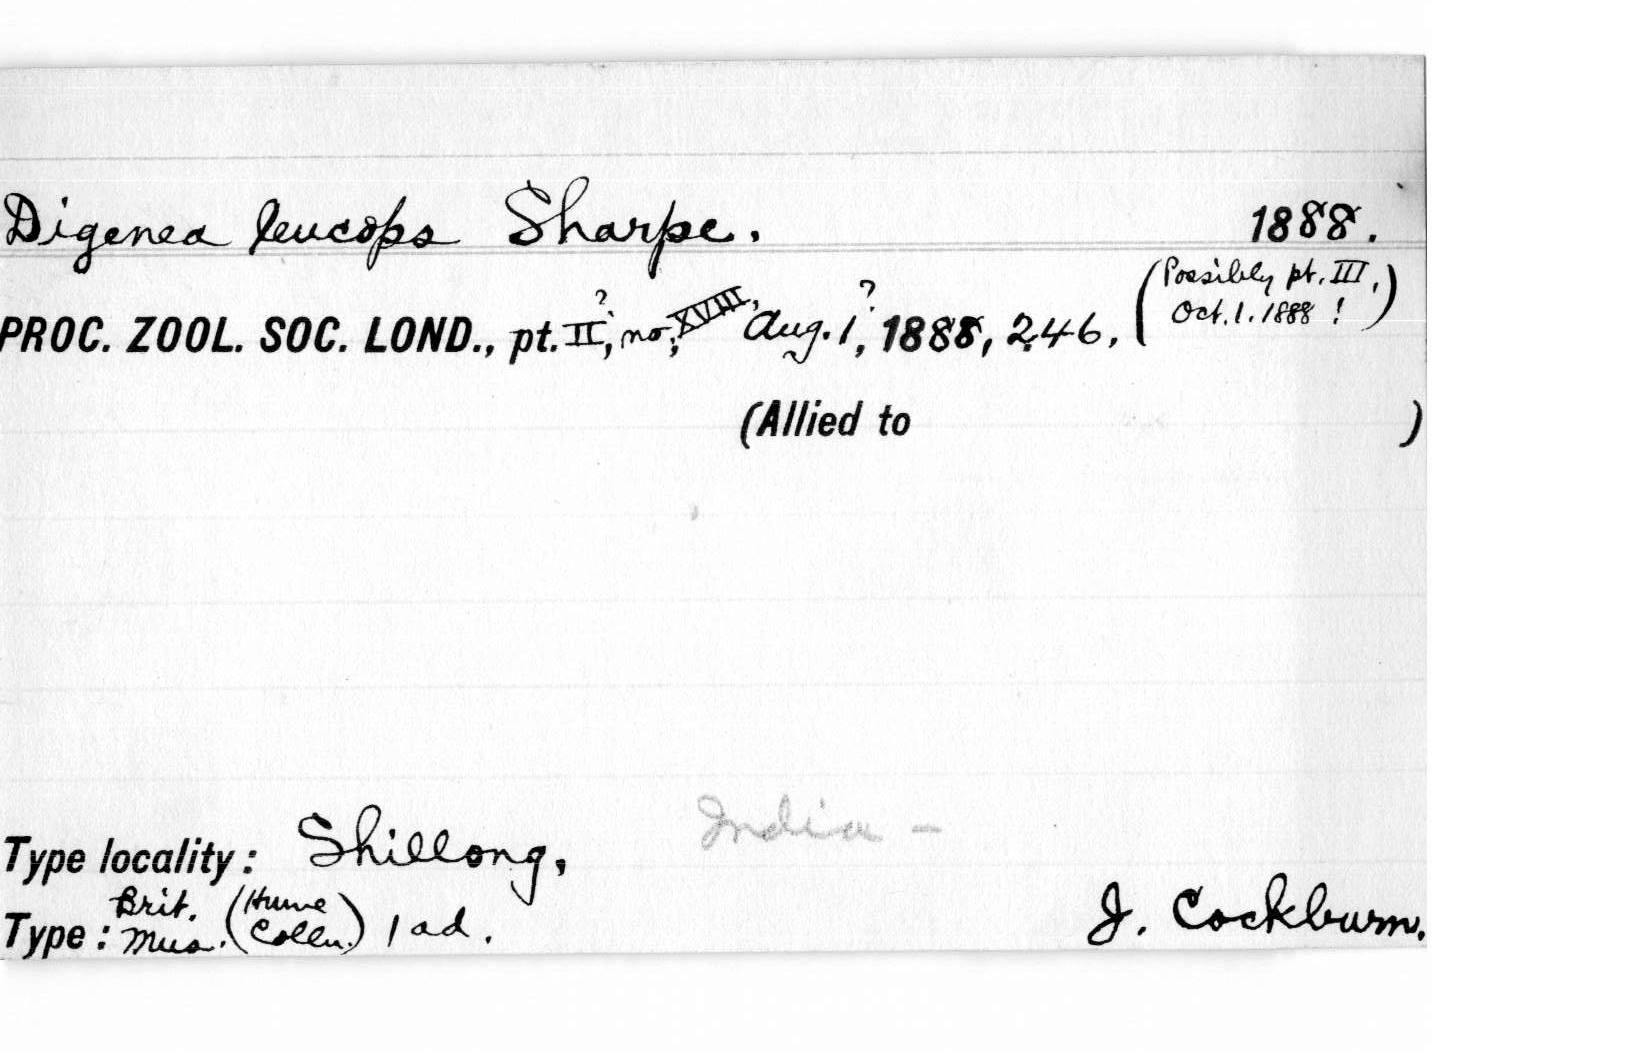 Digenea leucops Sharpe. 1888.
PROC. ZOOL. SOC. LOND., pt. II?, no. XVIII, Aug. 1?, 1888, 246, (Possibly pt. III, Oct. 1. 1888 !)
(Allied to )
Type locality: Shillong, India -
Type: Brit. Mus. (Hume Colln.) 1 ad. J. Cockburn.